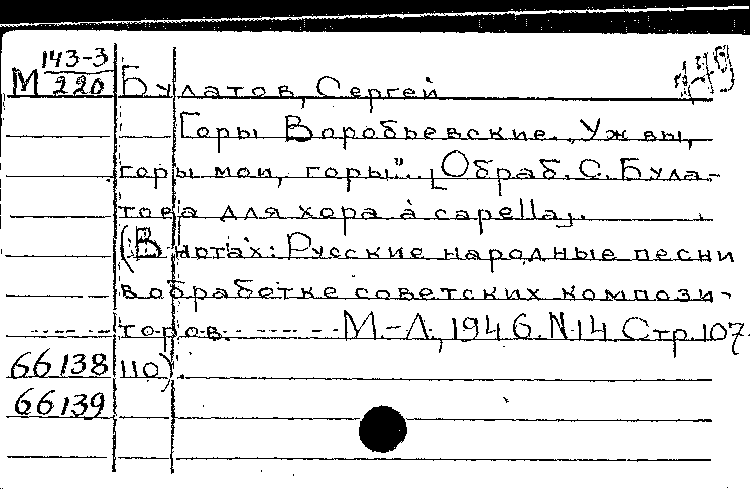 143-3
М 220 Булатов, Сергей
Горы Воробьевские. „Уж вы,
горы мои, горы". [Обраб. С. Була-
това для хора à capella].
(В нотах: Русские народные песни
в обработке советских компози-
торов. М.-Л., 1946. N.14. Стр. 107-
66138 110).
66139